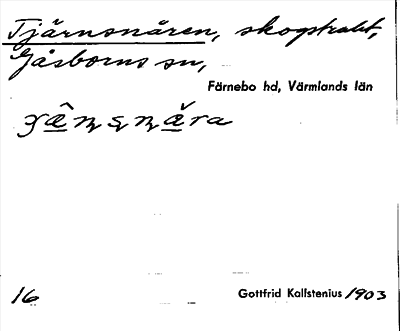 Tjärnsnåren, skogstrakt,
Gåsborns sn,
Färnebo hd, Värmlands län
16
Gottfrid Kallstenius 1903